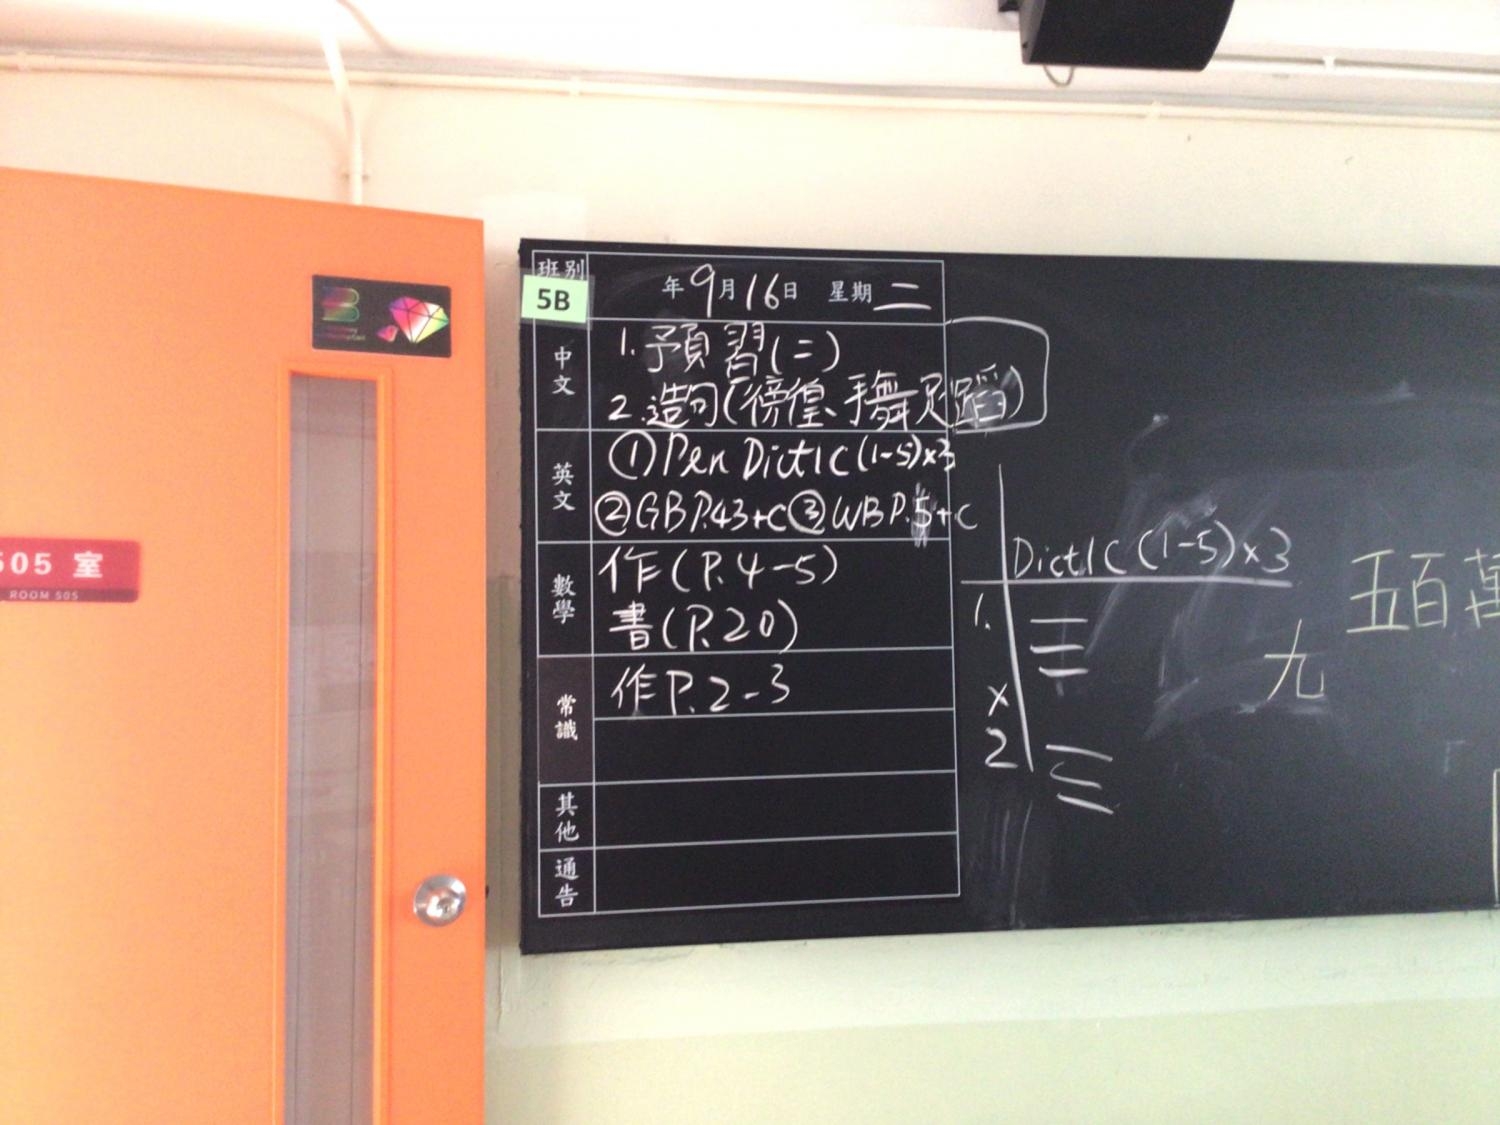 505 室
ROOM 505
班別
5B
年9月16日 星期二
中文
1.預習(二)
2.造句(徬徨、手舞足蹈)
英文
①Pen Dict1C(1-5)×3
②GBP.43+C③WBP.5+C
數學
作(P.4-5)
書(P.20)
常識
作P.2-3
其他
通告
Dict1C(1-5)×3
1.
×
2
九
五百萬